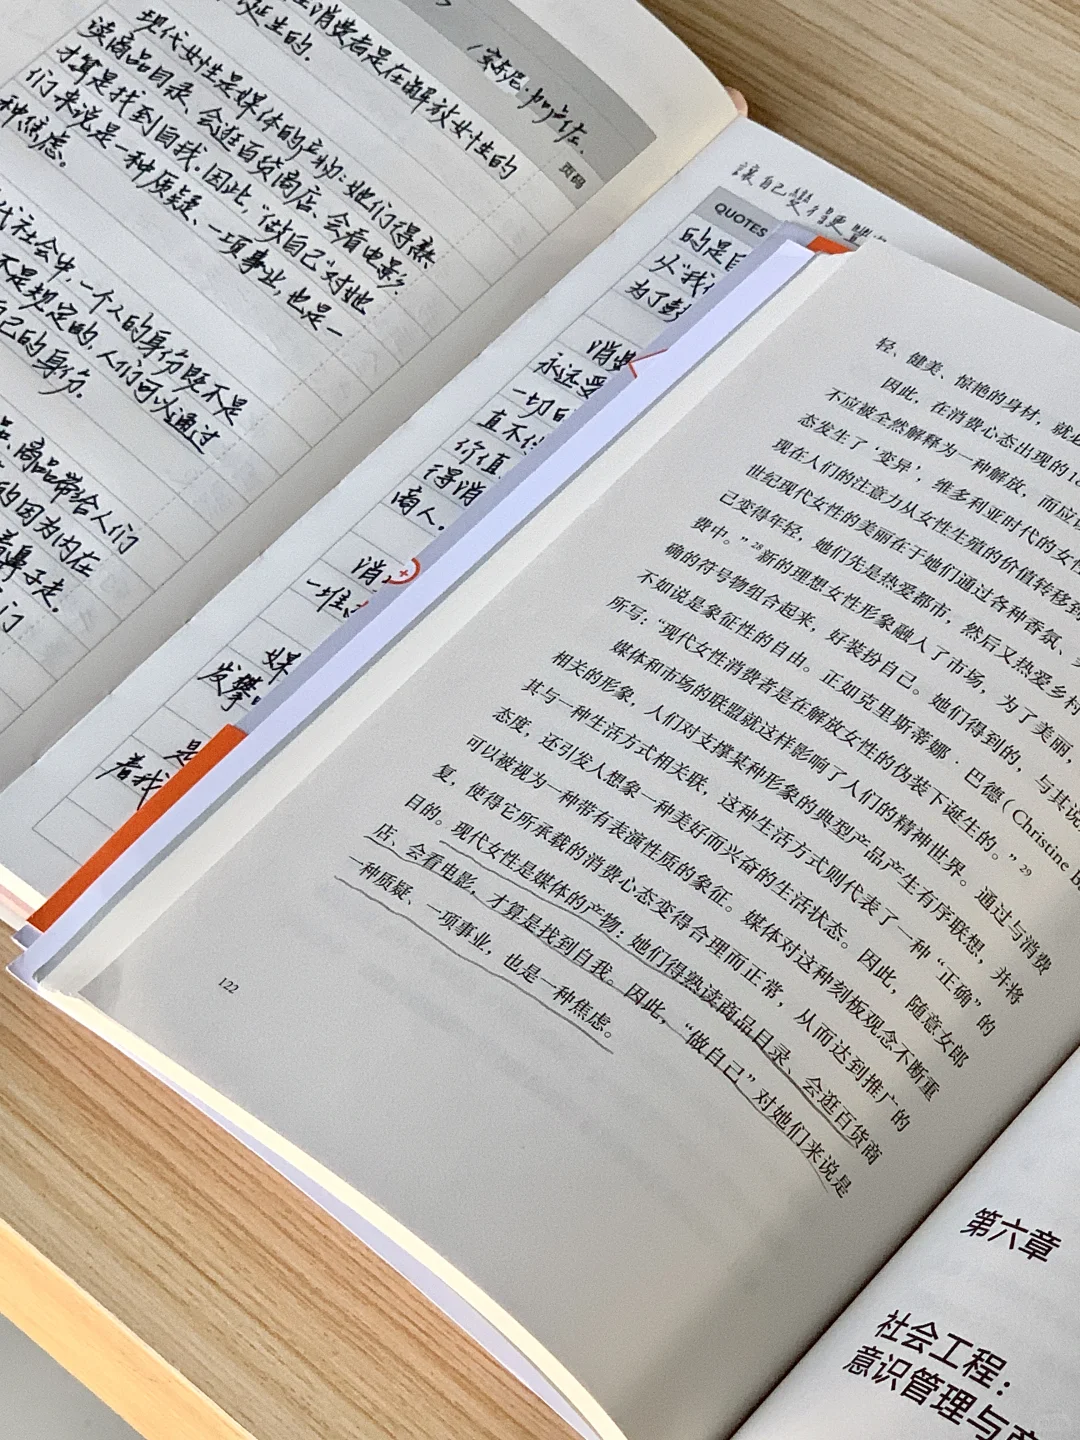 消费者是在解放女性的
诞生的。
安东尼·加卢佐.
页码
现代女性是媒体的产物：她们得熟
读商品目录、会逛百货商店、会看电影，
才算是找到自我.因此，“做自己”对她
们来说是一种质疑、一项事业，也是一
种焦虑。
代社会中，一个人的身份既不是
不是规定的，人们可以通过
自己的身份。
商品带给人们
的因为内在
着鼻子走.
们
讓自己變得更豐
QUOTES
的是
从“我
为了
消费
永远受
一切的
直不
价值
得消
商人。
消
一堆
媒
发攀
是
着我
轻、健美、惊艳的身材，就
因此，在消费心态出现的1
不应被全然解释为一种解放，而应
态发生了‘变异’，维多利亚时代的女
现在人们的注意力从女性生殖的价值转移到
世纪现代女性的美丽在于她们通过各种香氛、
己变得年轻，她们先是热爱都市，然后又热爱乡村
费中。”28新的理想女性形象融入了市场，为了美丽，
确的符号物组合起来，好装扮自己。她们得到的，与其说
不如说是象征性的自由。正如克里斯蒂娜·巴德（Christine B
所写：“现代女性消费者是在解放女性的伪装下诞生的。”29
媒体和市场的联盟就这样影响了人们的精神世界。通过与消费
相关的形象，人们对支撑某种形象的典型产品产生有序联想，并将
其与一种生活方式相关联，这种生活方式则代表了一种“正确”的
态度，还引发人想象一种美好而兴奋的生活状态。因此，随意女郎
可以被视为一种带有表演性质的象征。媒体对这种刻板观念不断重
复，使得它所承载的消费心态变得合理而正常，从而达到推广的
目的。现代女性是媒体的产物：她们得熟读商品目录、会逛百货商
店、会看电影，才算是找到自我。因此，“做自己”对她们来说是
一种质疑、一项事业，也是一种焦虑。
122
第六章
社会工程：
意识管理与